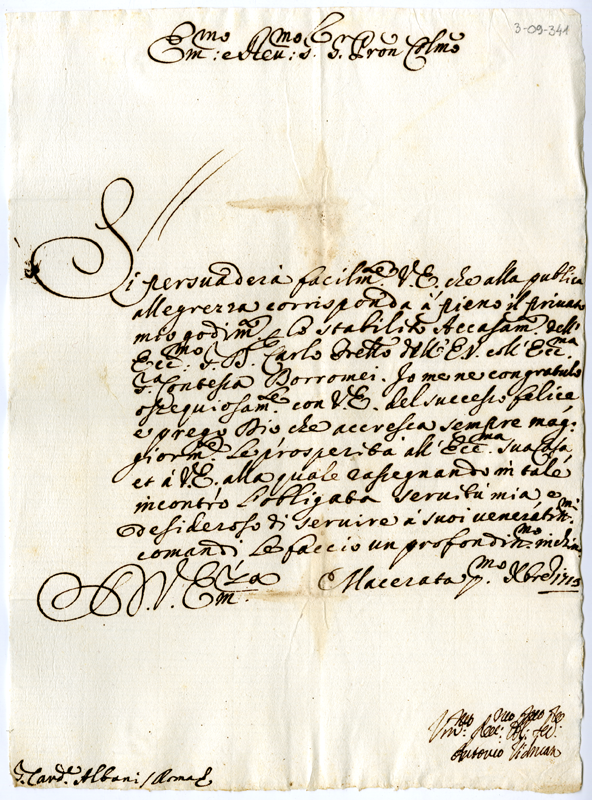 3-09-341
Em:mo e Reu:mo S.r S.r Pron Colmo
Si persuaderà facilm.te V.E. che alla publica
allegrezza corrisponda à pieno il privato
mio godim.to p lo stabilito Accasam.to dell'
Ecc:mo S.r D. Carlo Fretto dell'E.V. coll'Ecc:ma
S.ra Contessa Borromei. Io me ne congratulo
ossequiosam.te con V.E. del successo felice
e prego Dio che accresca sempre mag:
giorm.te le prosperità all'Ecc:ma sua Casa,
et à V.E. alla quale rassegnando in tale
incontro l'obligata servitù mia e
desideroso di servire à suoi venerat.mi
comandi le faccio un profondiss.mo inchino
D. V. Em:za Macerata p.mo Xbre 1713
Um:mo Deuo
Antonio
S. Card. Albani / Roma